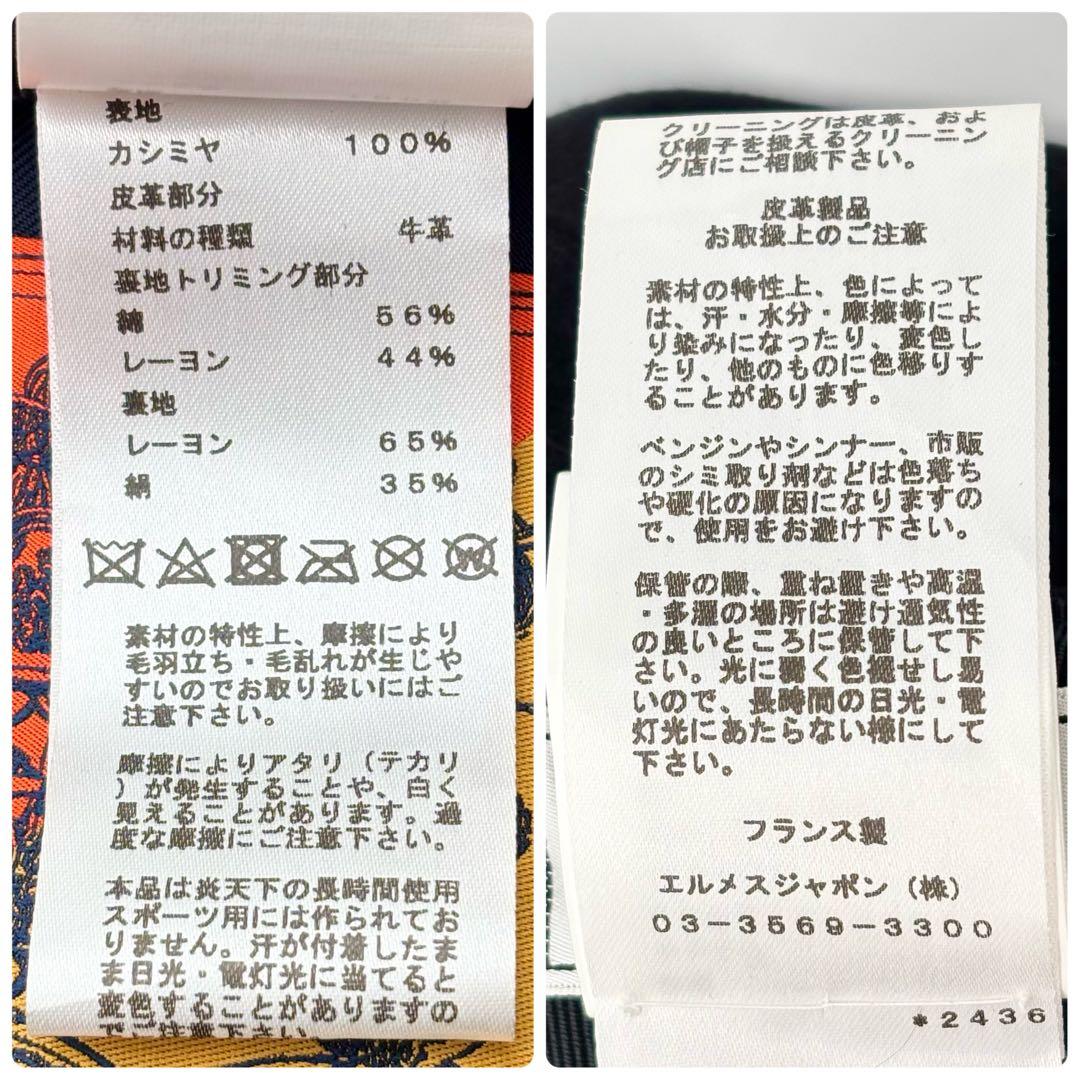 表地
カシミヤ 100%
皮革部分
材料の種類 牛革
裏地トリミング部分
綿 56%
レーヨン 44%
裏地
レーヨン 65%
絹 35%
W
素材の特性上、摩擦により
毛羽立ち・毛乱れが生じや
すいのでお取り扱いにはご
注意下さい。
摩擦によりアタリ（テカリ
）が発生することや、白く
見えることがあります。過
度な摩擦にご注意下さい。
本品は炎天下の長時間使用
スポーツ用には作られてお
りません。汗が付着したま
ま日光・電灯光に当てると
変色することがありますの
でご注意下さい
クリーニングは皮革、およ
び帽子を扱えるクリーニン
グ店にご相談下さい。
皮革製品
お取扱上のご注意
素材の特性上、色によって
は、汗・水分・摩擦等によ
り染みになったり、変色し
たり、他のものに色移りす
ることがあります。
ベンジンやシンナー、市販
のシミ取り剤などは色落ち
や硬化の原因になりますの
で、使用をお避け下さい。
保管の際、重ね置きや高温
・多湿の場所は避け通気性
の良いところに保管して下
さい。光に弱く色褪せし易
いので、長時間の日光・電
灯光にあたらない様にして
下さい。
フランス製
エルメスジャポン（株）
03-3569-3300
*2436